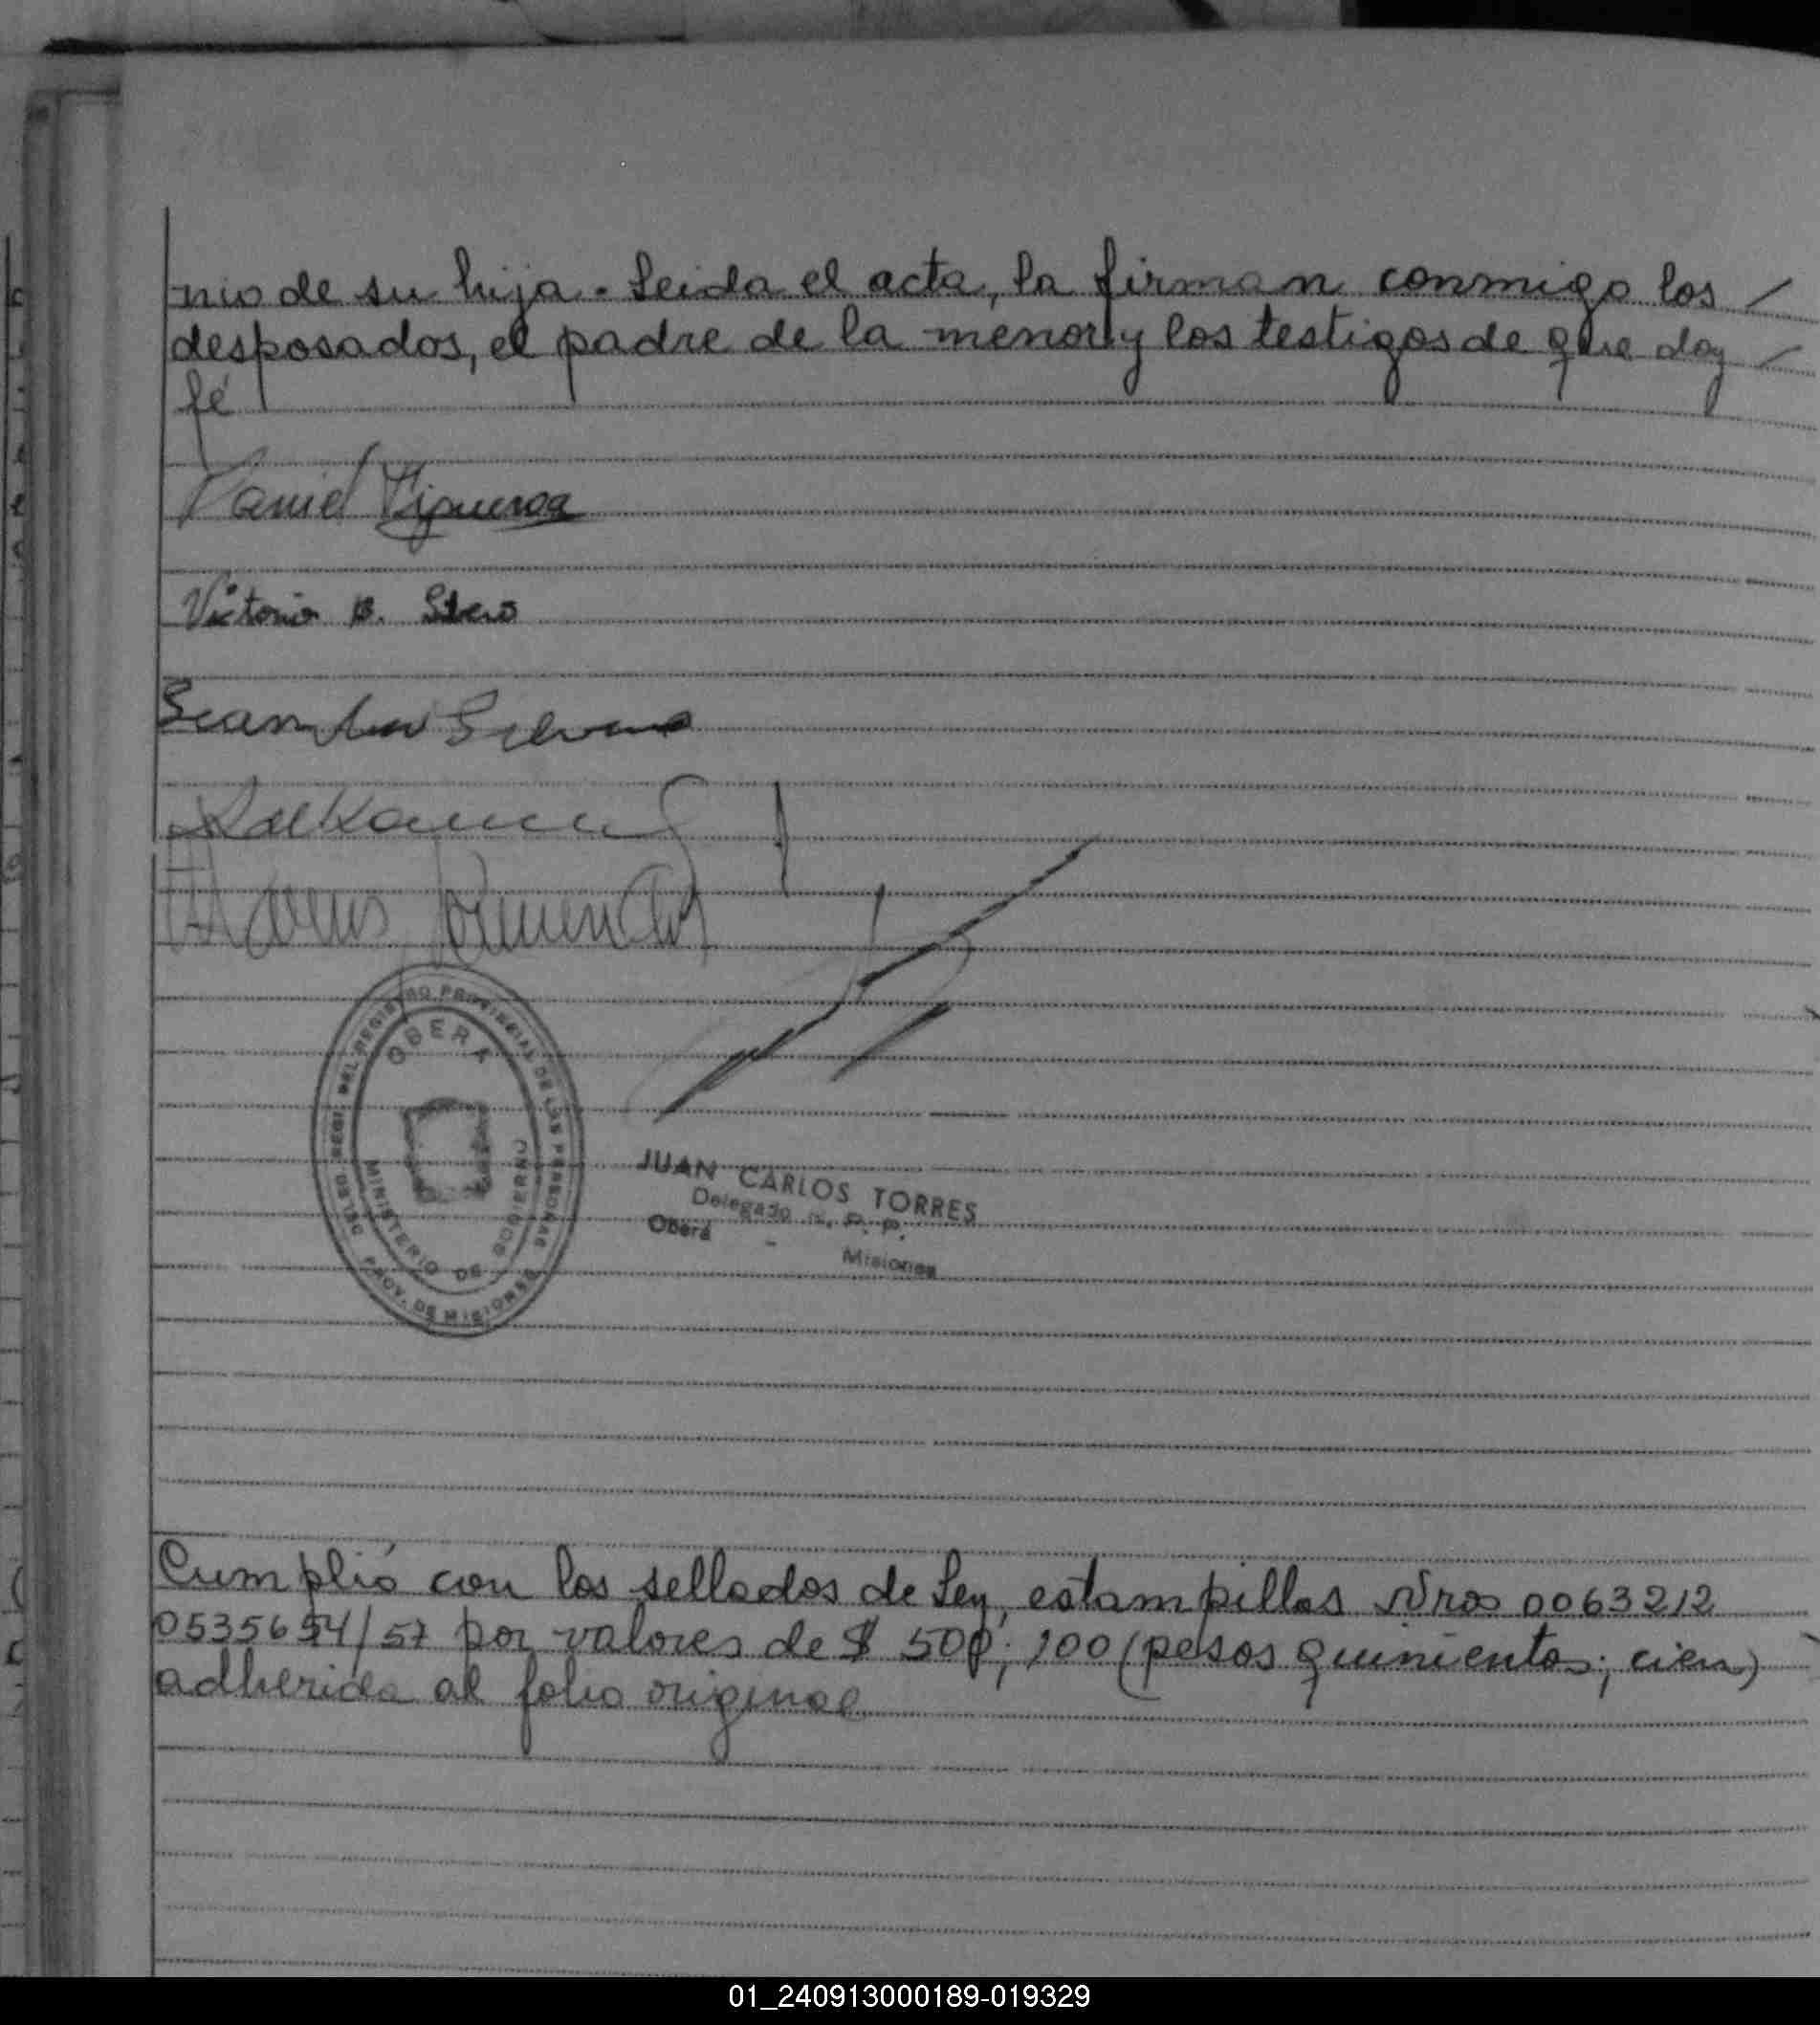 nio de su hija. Leida el acta, la firman conmigo los /
desposados, el padre de la menor y los testigos de que doy /
fé
Daniel Figueroa
Victorio B.
DELEG. REGI. DEL REGISTRO PROVINCIAL DE LAS PERSONAS
OBERA
MINISTERIO DE GOBIERNO
PROV. DE MISIONES
JUAN CARLOS TORRES
Delegado R. P. P.
Oberá - Misiones
Cumplió con los sellados de Ley, estampillas Nros 0063212
0535654/57 por valores de $ 500; 100 (pesos quinientos; cien)
adherida al folio original
01_240913000189-019329